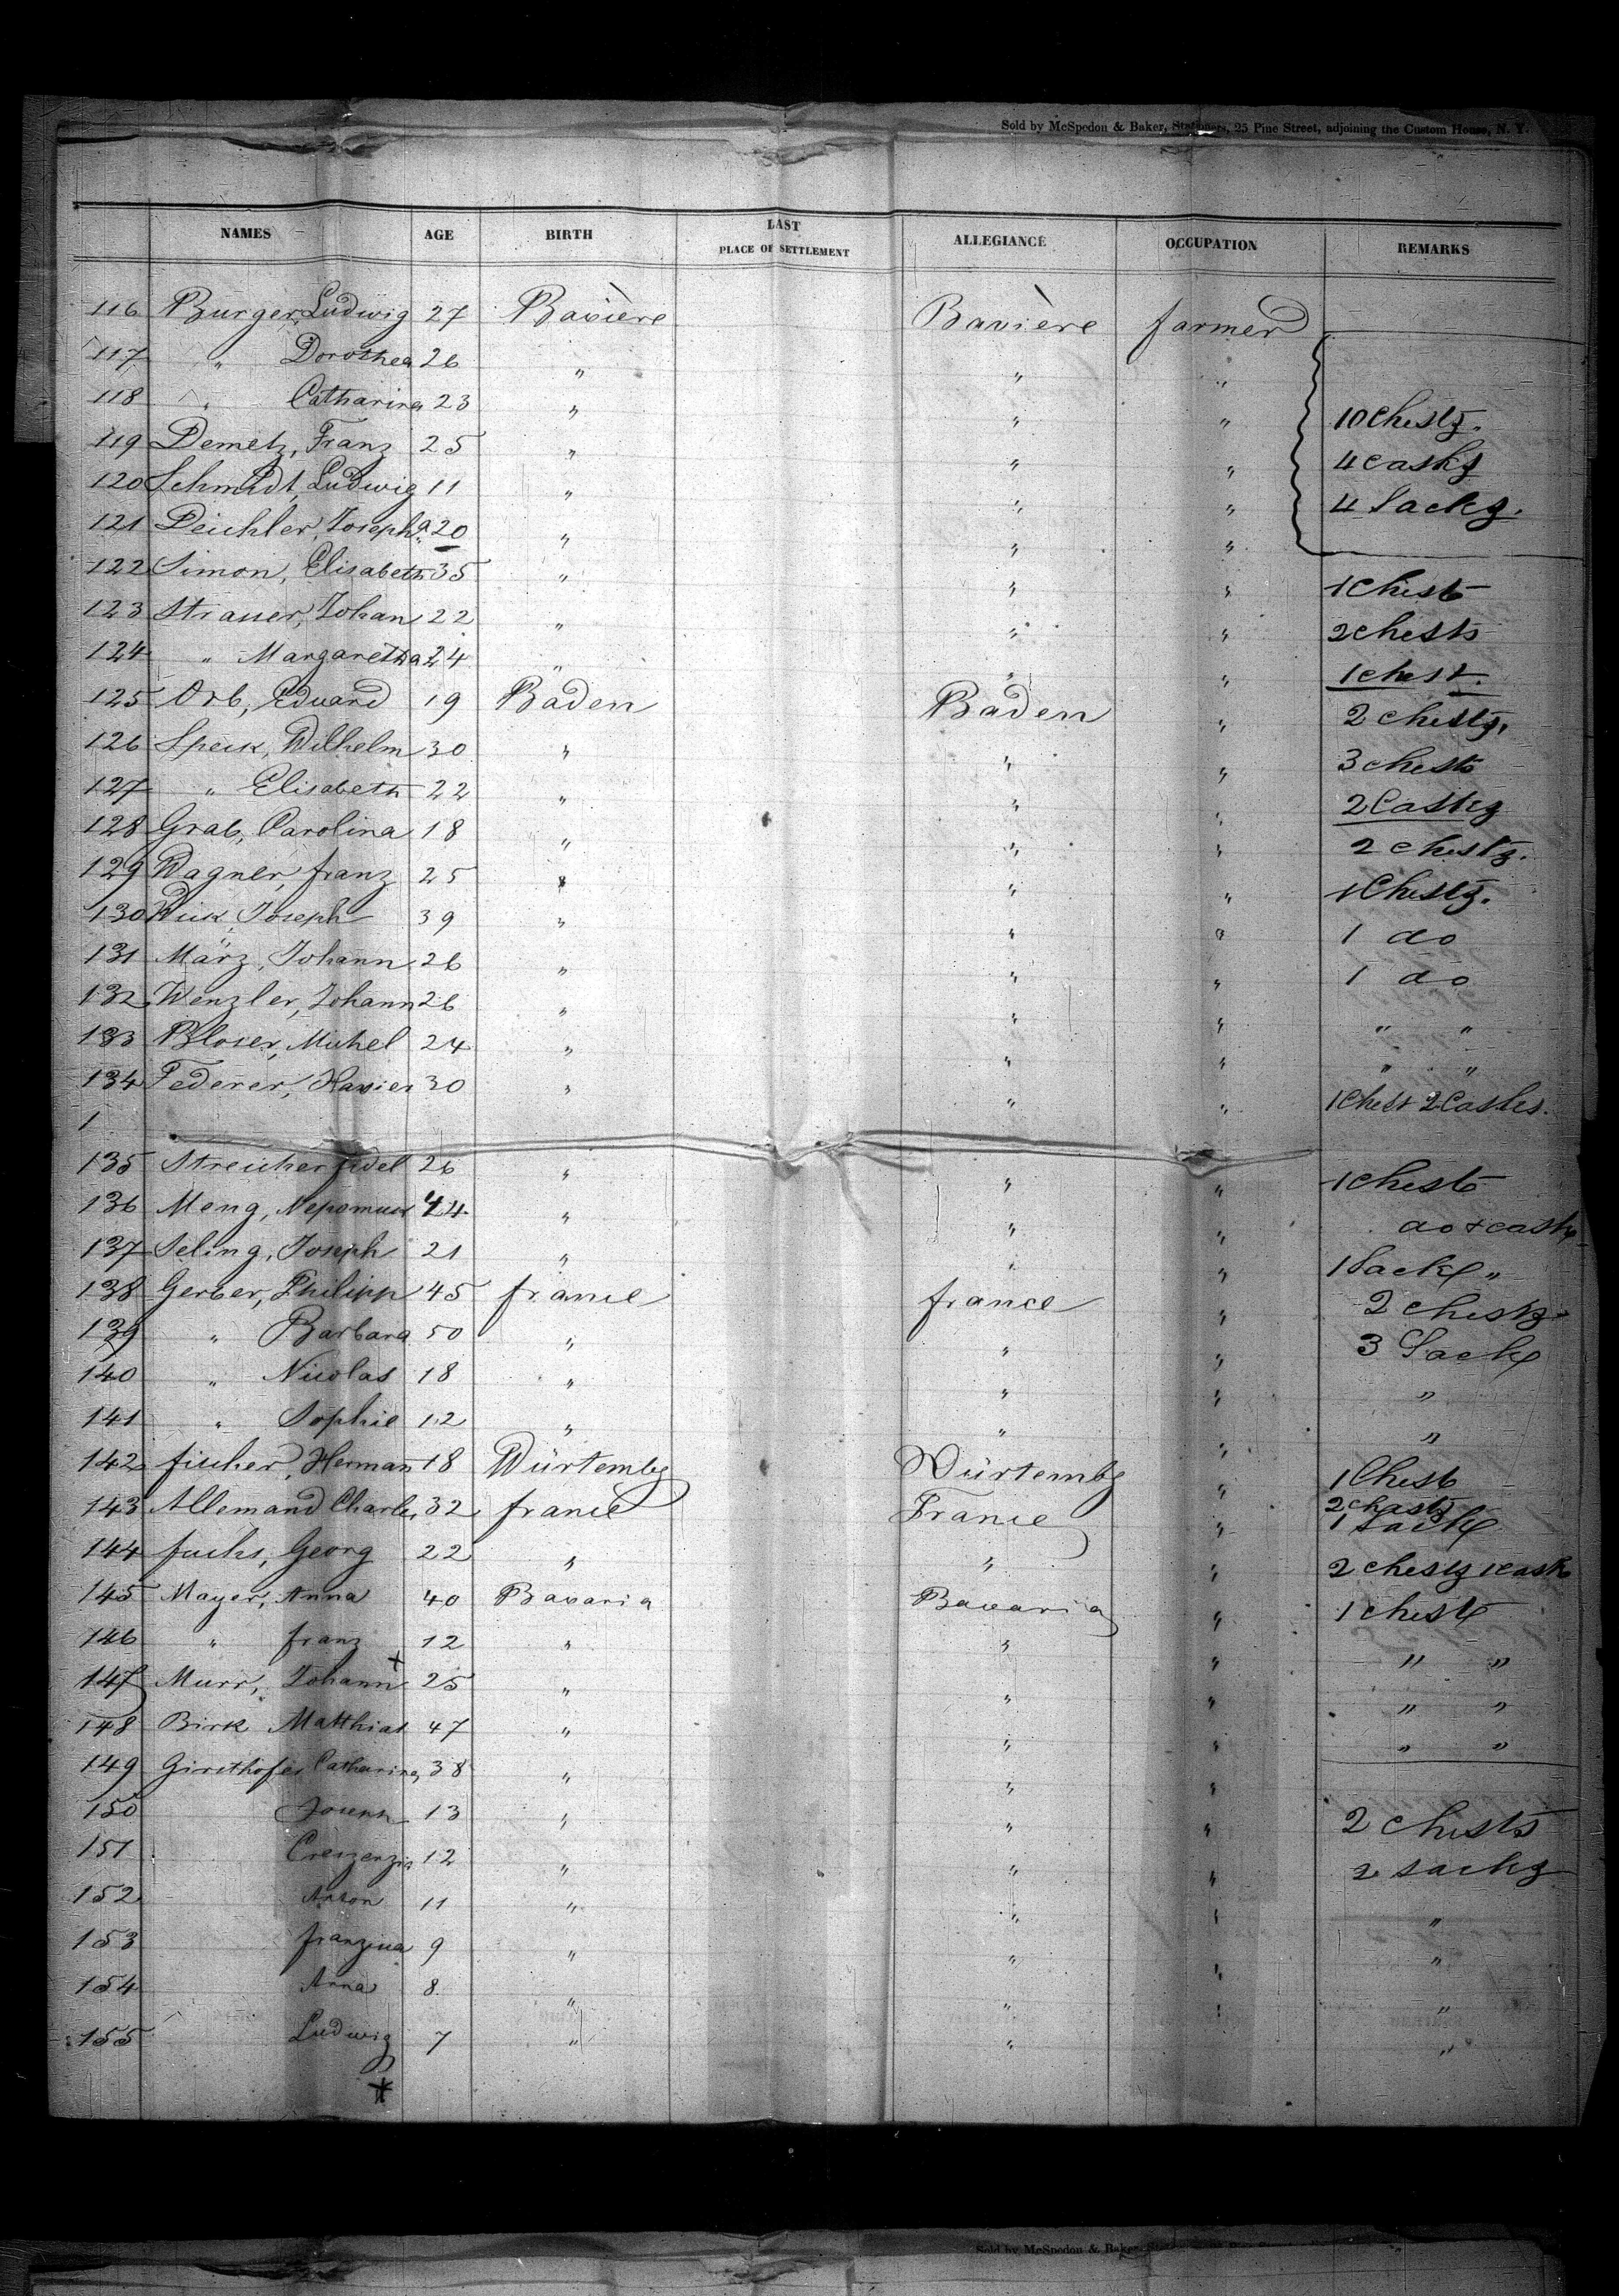 Sold by McSpedon & Baker, Stationers, 25 Pine Street, adjoining the Custom House, N. Y.
NAMES AGE BIRTH LAST PLACE OF SETTLEMENT ALLEGIANCE OCCUPATION REMARKS
116 Burger, Ludwig 27 Bavière Bavière farmer
117 " Dorothea 26 " " "
118 " Catharina 23 " " " 10 Chests.
119 Demetz, Franz 25 " " " 4 casks
120 Schmidt, Ludwig 11 " " " 4 Sacks.
121 Deichler, Josepha 20 " " "
122 Simon, Elisabeth 35 " " " 1 Chest
123 Strauer, Johan 22 " " " 2 chests
124 " Margaretha 24 " " " 1 chest.
125 Orb, Eduard 19 Baden Baden " 2 chests.
126 Speck, Wilhelm 30 " " " 3 chests
127 " Elisabeth 22 " " " 2 Casks
128 Grab, Carolina 18 " " " 2 chests.
129 Wagner, franz 25 " " " 1 Chests.
130 Wick, Joseph 39 " " " 1 do
131 März, Johann 26 " " " 1 do
132 Wenzler, Johann 26 " " " " "
133 Bloser, Michel 24 " " " " "
134 Federer, Xavier 30 " " " 1 Chest 2 Casks.
1
135 Streicher fidel 26 " " " 1 Chest
136 Meng, Nepomuck 44 " " " do & cask
137 Seling, Joseph 21 " " " 1 Sack "
138 Gerber, Philipp 45 france france " 2 chests
139 " Barbara 50 " " " 3 Sack
140 " Nicolas 18 " " " "
141 " Sophie 12 " " " "
142 fischer, Herman 18 Würtembg Würtembg " 1 Chest
143 Allemand Charles 32 france France " 2 chests 1 Sack
144 fuchs, Georg 22 " " " 2 chests 1 cask
145 Mayer, Anna 40 Bavaria Bavaria " 1 chest
146 " franz 12 " " " " "
147 Murr, Johann 25 " " " " "
148 Birk Matthias 47 " " " " "
149 Catharina 38 " " "
150 Joseph 13 " " " 2 chests
151 12 " " " 2 sacks
152 Anton 11 " " " "
153 9 " " " "
154 Anna 8 " " " "
155 Ludwig 7 " " "
Sold by McSpedon & Baker